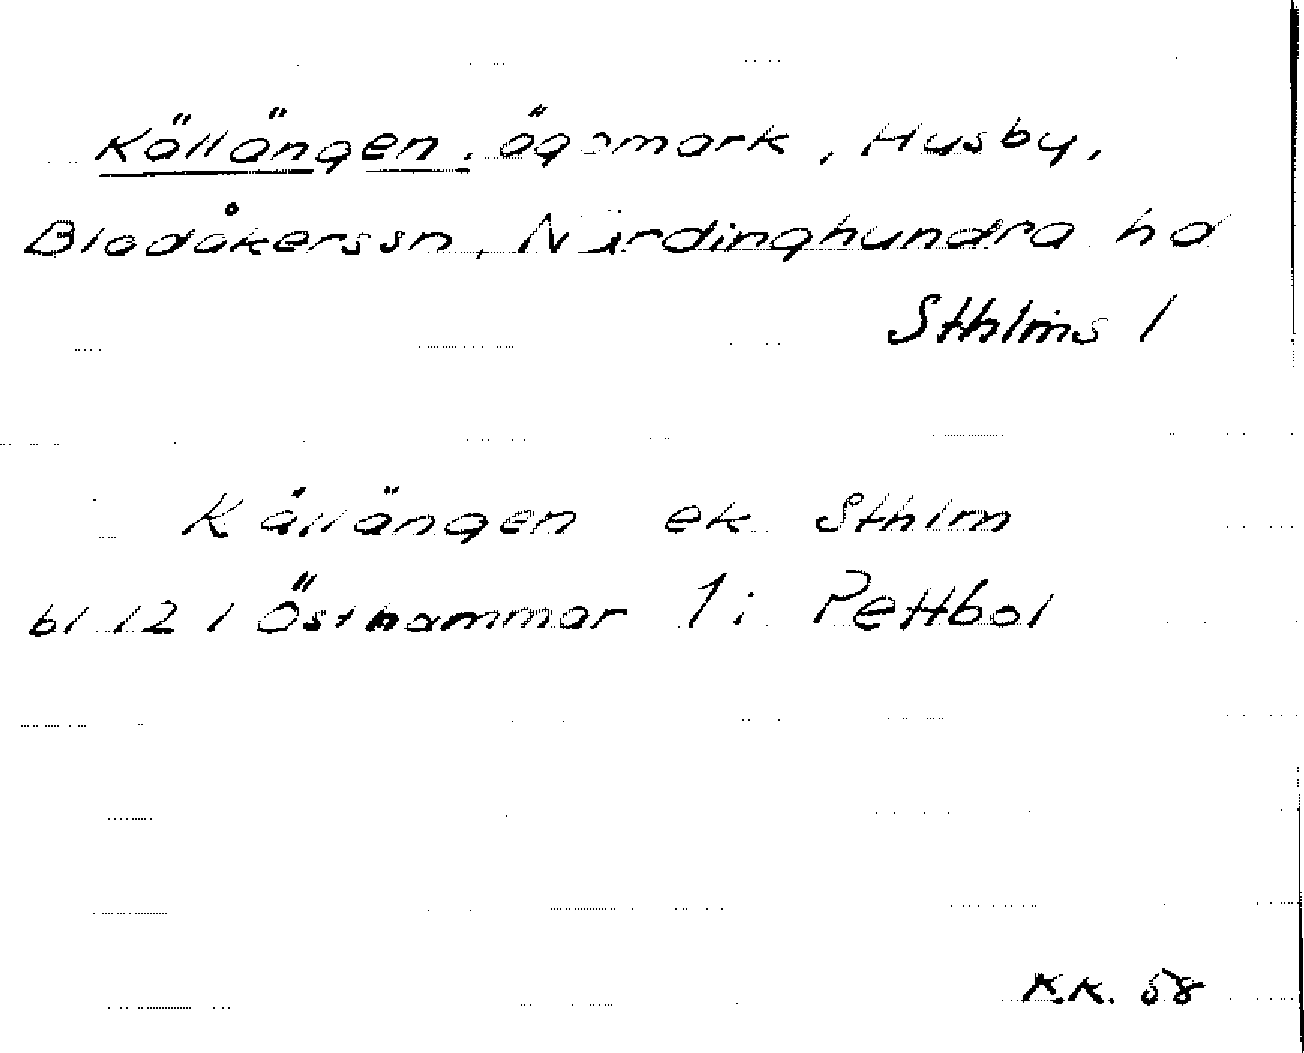 Källängen, ägomark, Husby,
Bladåkerssn, Närdinghundra hd
Sthlms l
Källängen ek Sthlm
bl 12 l Östhammar 1: Pettbol
K.K. 58